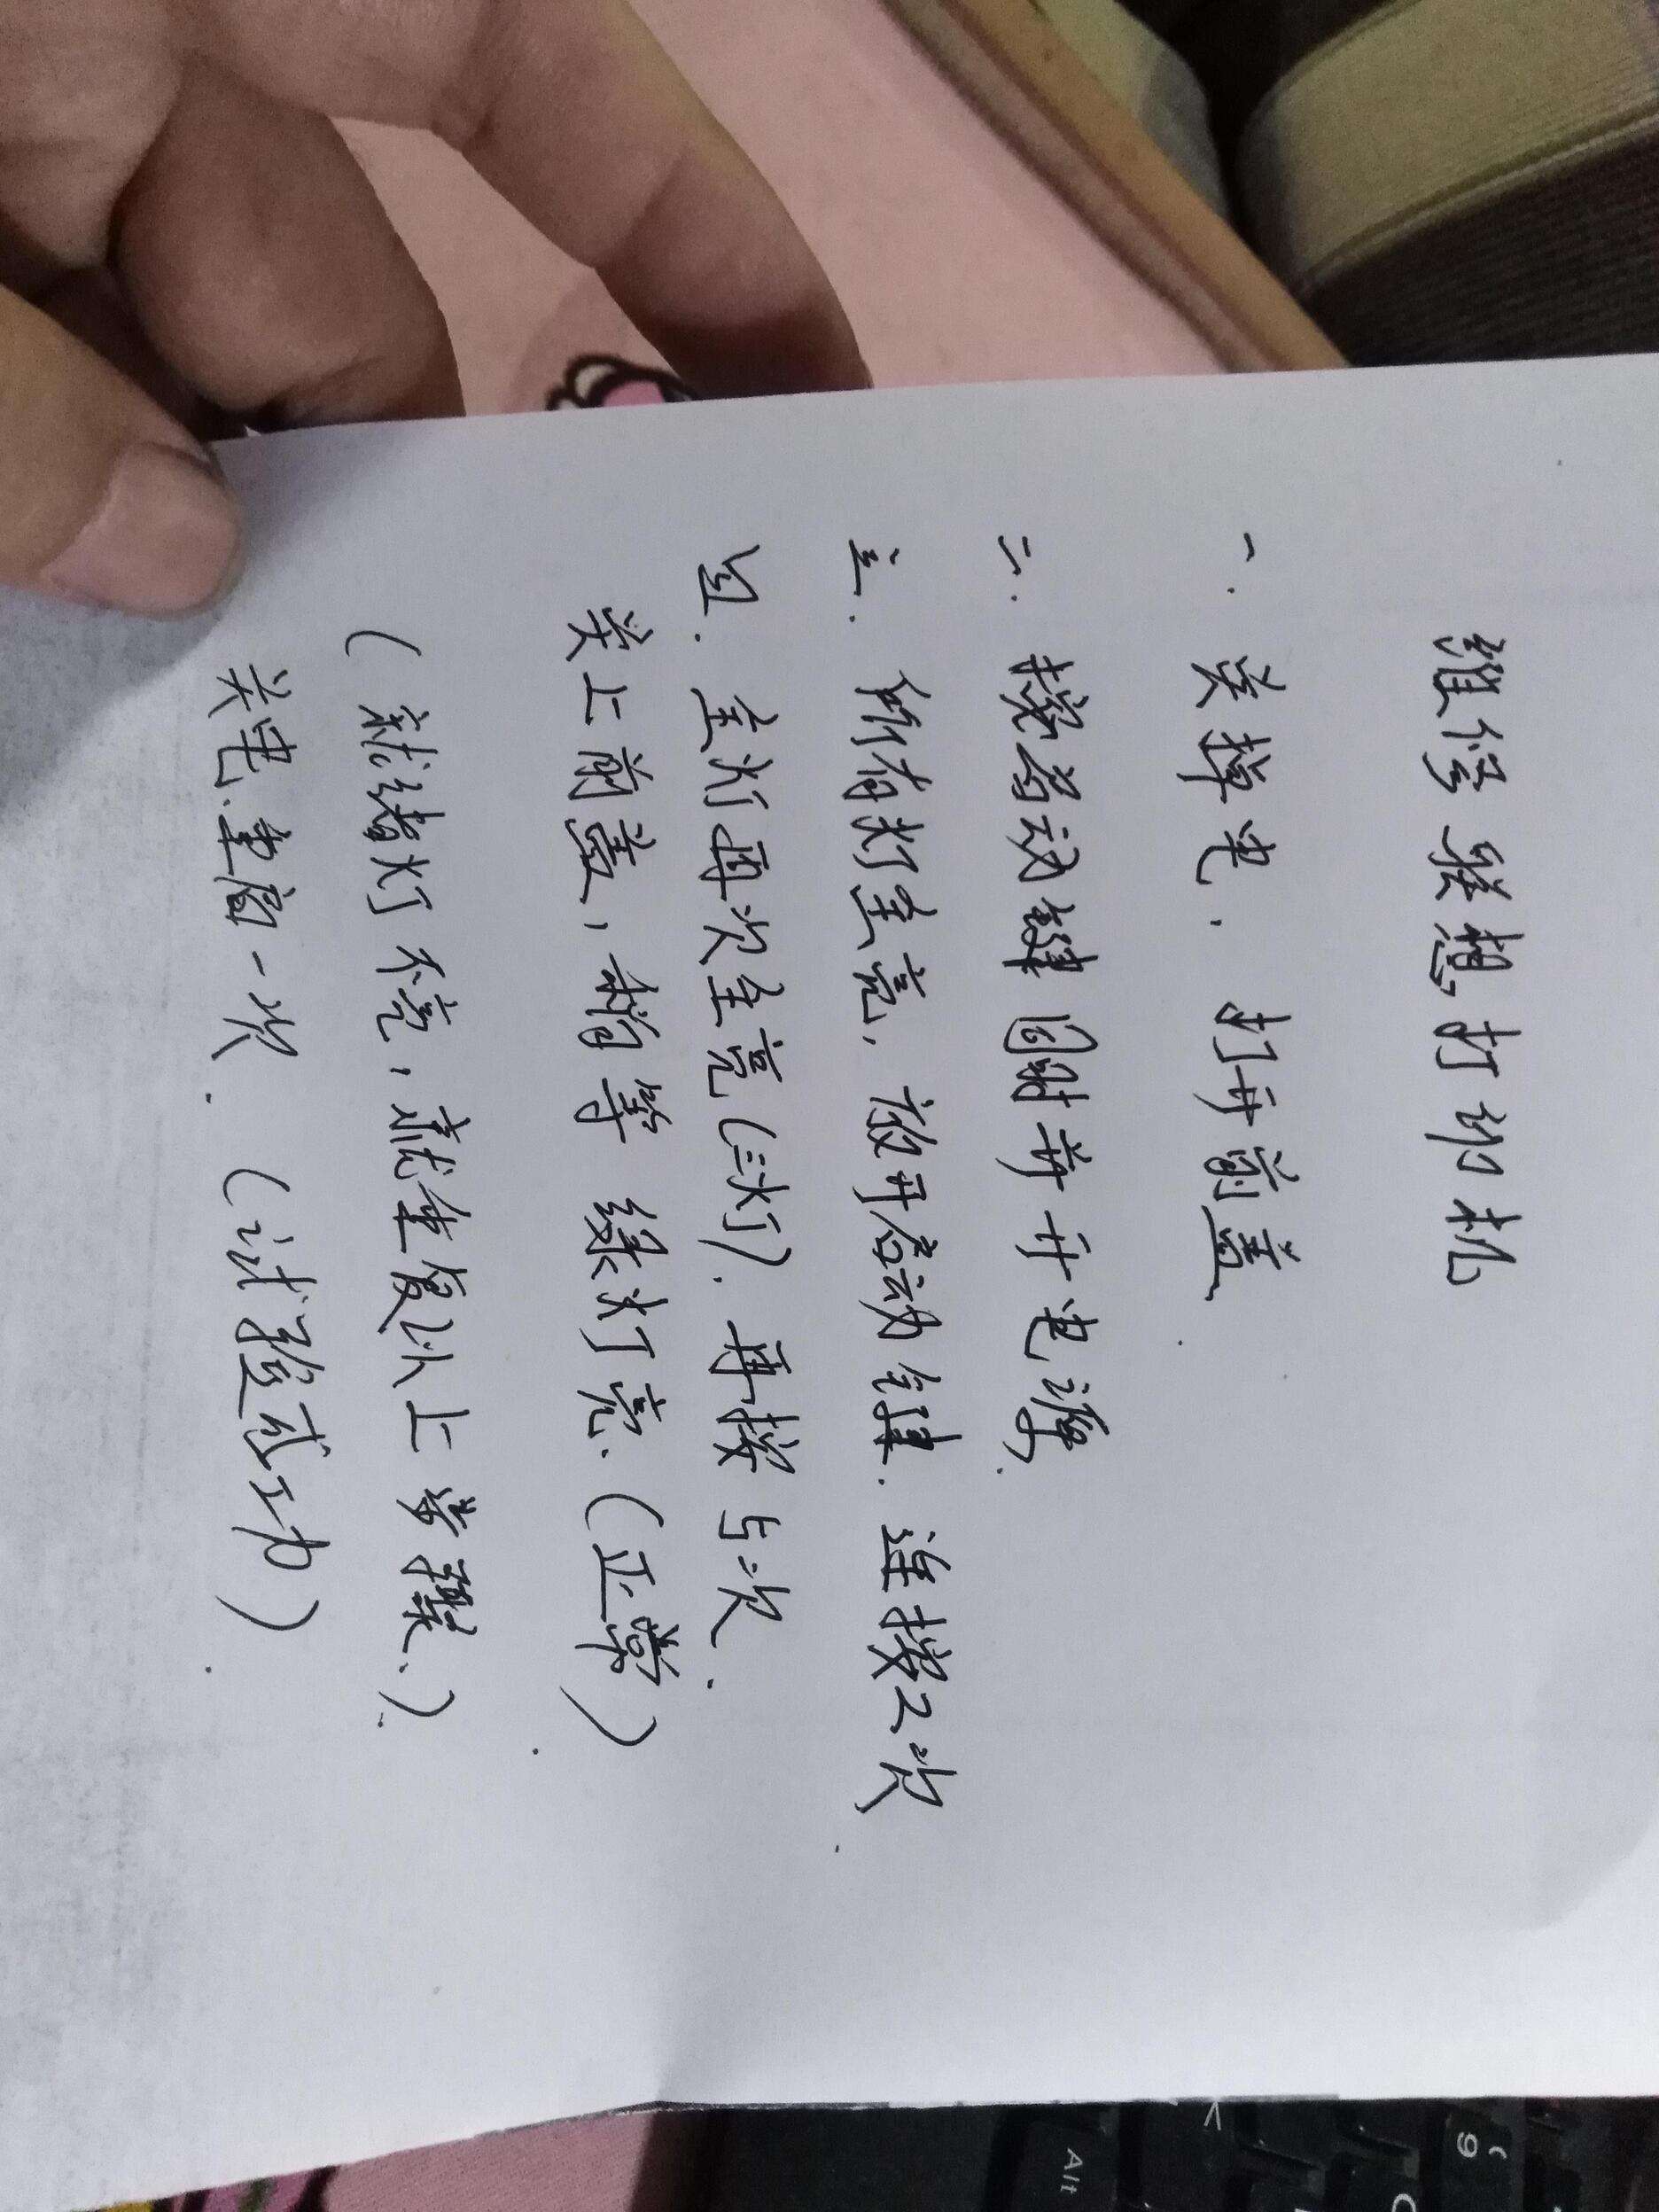 维修联想打印机
一. 关掉电. 打开前盖.
二. 按启动键同时开电源.
三. 所有灯全亮, 放开启动键. 连按2次
四. 全灯再次全亮(三灯). 再按5次.
关上前盖, 稍等 绿灯亮. (正常)
(就绪灯不亮, 就重复以上步骤.)
关电. 重启一次. (试验成功)
Alt
9